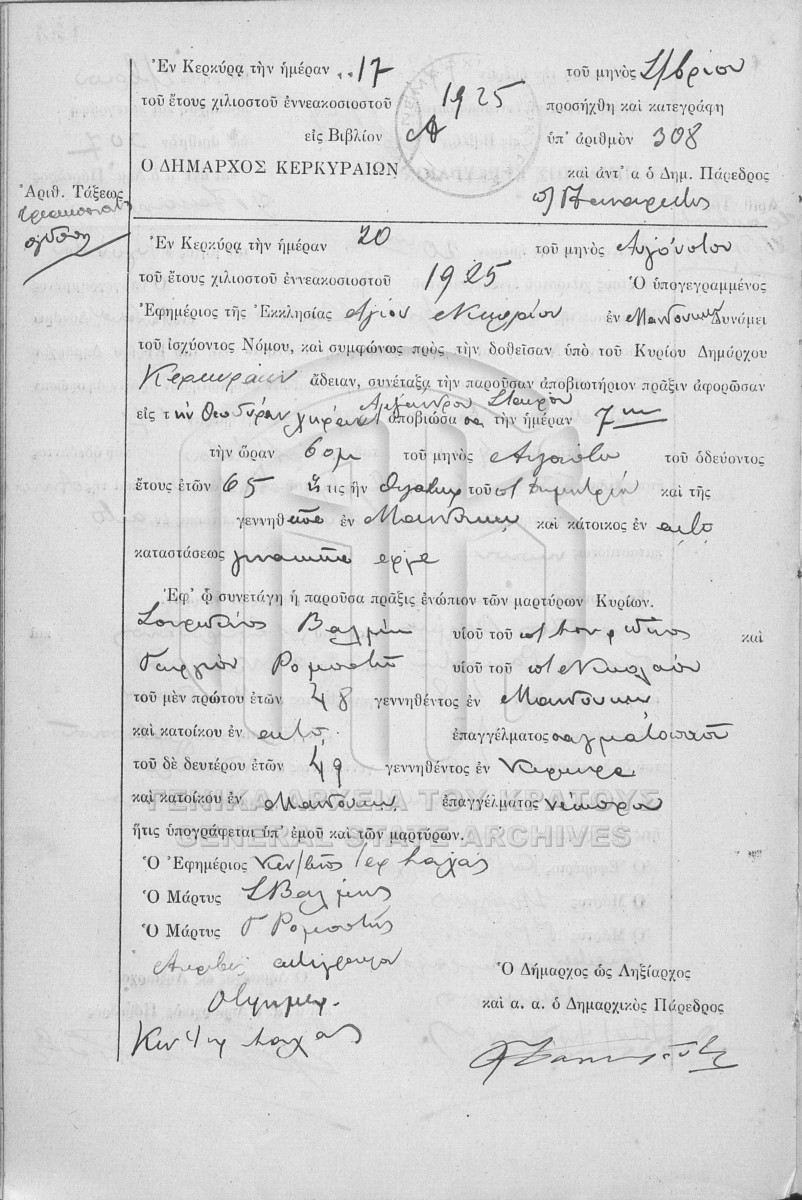 Ἐν Κερκύρᾳ τὴν ἡμέραν 17 τοῦ μηνὸς 7/βρίου
τοῦ ἔτους χιλιοστοῦ ἐννεακοσιοστοῦ 1925 προσήχθη καὶ κατεγράφη
εἰς Βιβλίον Α ὑπ' ἀριθμὸν 308
Ο ΔΗΜΑΡΧΟΣ ΚΕΡΚΥΡΑΙΩΝ καὶ ἀντ' α ὁ Δημ. Πάρεδρος
Ἀριθ. Τάξεως
τριακοσιοστὴ
ὀγδόη
Ἐν Κερκύρᾳ τὴν ἡμέραν 20 τοῦ μηνὸς Αὐγούστου
τοῦ ἔτους χιλιοστοῦ ἐννεακοσιοστοῦ 1925 Ὁ ὑπογεγραμμένος
Ἐφημέριος τῆς Ἐκκλησίας Ἁγίου ἐν Μανδουκίῳ Δυνάμει
τοῦ ἰσχύοντος Νόμου, καὶ συμφώνως πρὸς τὴν δοθεῖσαν ὑπὸ τοῦ Κυρίου Δημάρχου
Κερκυραίων ἄδειαν, συνέταξα τὴν παροῦσαν ἀποβιωτήριον πρᾶξιν ἀφορῶσαν
εἰς τὴν Θεοδώραν χήραν Ἀλεξάνδρου ἀποβιώσασαν τὴν ἡμέραν 7ην
τὴν ὥραν 6 μμ τοῦ μηνὸς Αὐγούστου τοῦ ὁδεύοντος
ἔτους ἐτῶν 65 ἥτις ἦν θυγάτηρ τοῦ ποτ Δημητρίου καὶ τῆς
γεννηθεῖσα ἐν Μανδουκίῳ καὶ κάτοικος ἐν αὐτῷ
καταστάσεως γυναικεῖα ἔργα
Ἐφ' ᾧ συνετάγη ἡ παροῦσα πρᾶξις ἐνώπιον τῶν μαρτύρων Κυρίων.
Σπυρίδωνος Βαλμᾶ υἱοῦ τοῦ καὶ
Γεωργίου Ρομποτῆ υἱοῦ τοῦ ποτ Νικολάου
τοῦ μὲν πρώτου ἐτῶν 48 γεννηθέντος ἐν Μανδουκίῳ
καὶ κατοίκου ἐν αὐτῷ. ἐπαγγέλματος σαγματοποιοῦ
τοῦ δὲ δευτέρου ἐτῶν 49 γεννηθέντος ἐν Κερκύρᾳ
καὶ κατοίκου ἐν Μανδουκίῳ ἐπαγγέλματος νεωκόρου
ΓΕΝΙΚΑ ΑΡΧΕΙΑ ΤΟΥ ΚΡΑΤΟΥΣ
ἥτις ὑπογράφεται ὑπ' ἐμοῦ καὶ τῶν μαρτύρων.
GENERAL STATE ARCHIVES
Ὁ Ἐφημέριος
Ὁ Μάρτυς Σ Βαλμᾶς
Ὁ Μάρτυς Γ Ρομποτής
Ἀκριβὲς ἀντίγραφον
Ὁ Ἐφημερ.
Ὁ Δήμαρχος ὡς Ληξίαρχος
καὶ α. α. ὁ Δημαρχικὸς Πάρεδρος